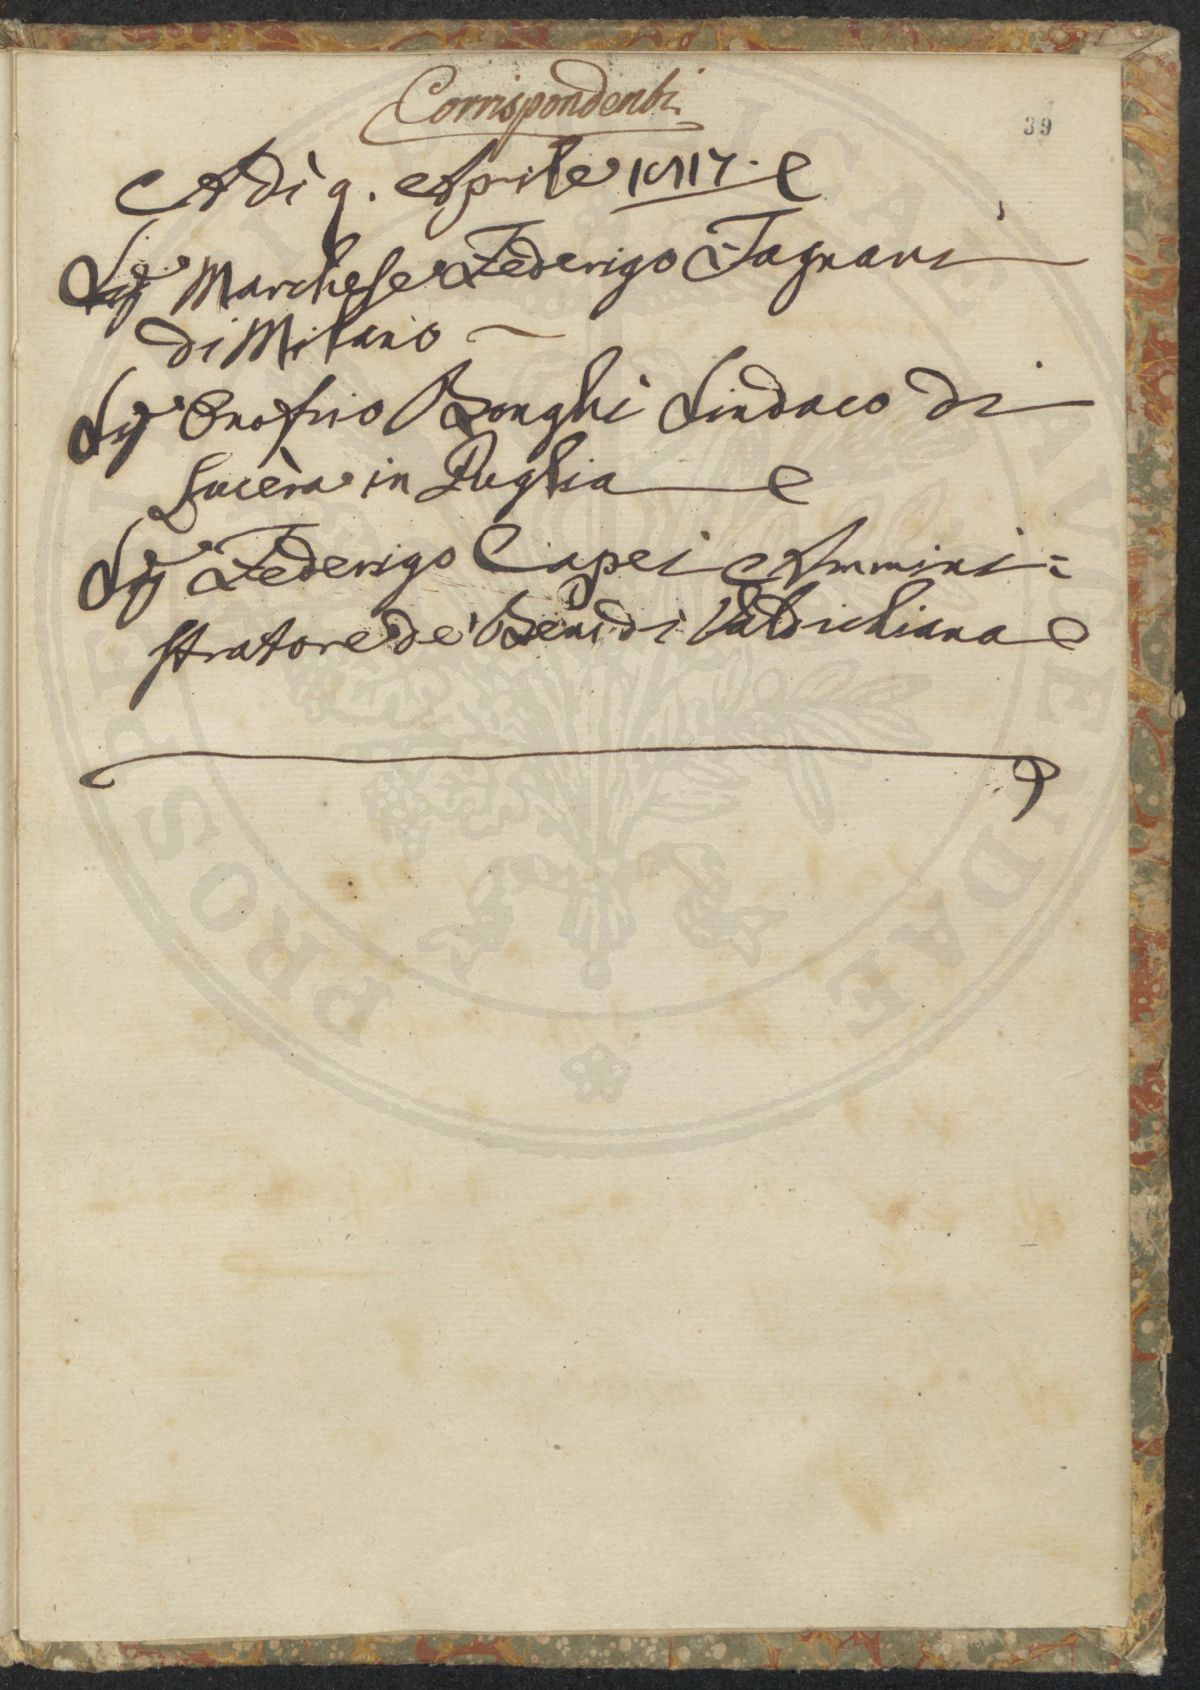 Corrispondenti
39
Adì 9. Aprile 1817.
Sig.re Marchese Federigo Fagnani
di Milano
Sig.re Onofrio Bonghi Sindaco di
Lucèra in Puglia
Sig.re Federigo Capei Ammini=
stratore de' Beni di Valdichiana
PROSPERITATI PUBLICAE AVGENDAE